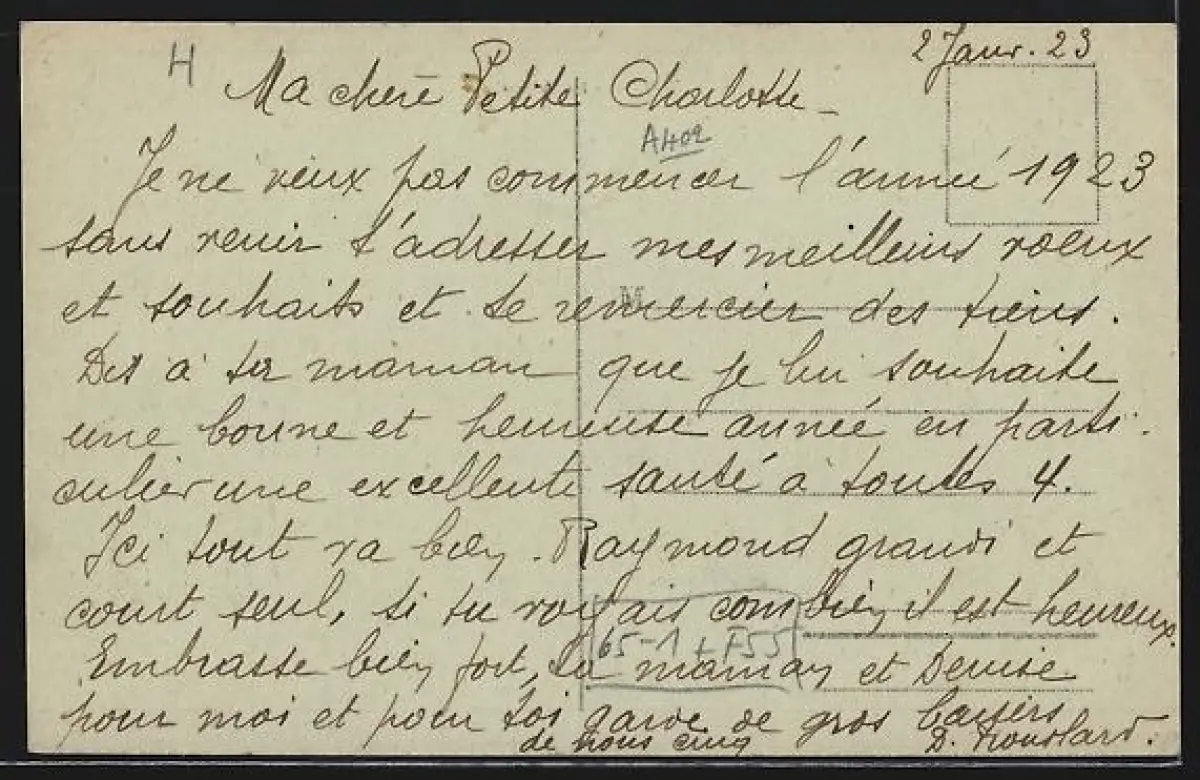 2 Janv. 23
H
Ma chère Petite Charlotte _
A402
Je ne veux pas commencer l'année 1923
sans venir t'adresser mes meilleurs voeux
et souhaits et te remercier des tiens.
M
Dis à ta maman que je lui souhaite
une bonne et heureuse année en parti-
culier une excellente santé à toutes 4.
Ici tout va bien. Raymond grandi et
court seul, si tu voyais combien il est heureux.
65-1 + F55
Embrasse bien fort, ta maman et Denise
pour moi et pour toi garde de gros baisers
de nous cinq
D.